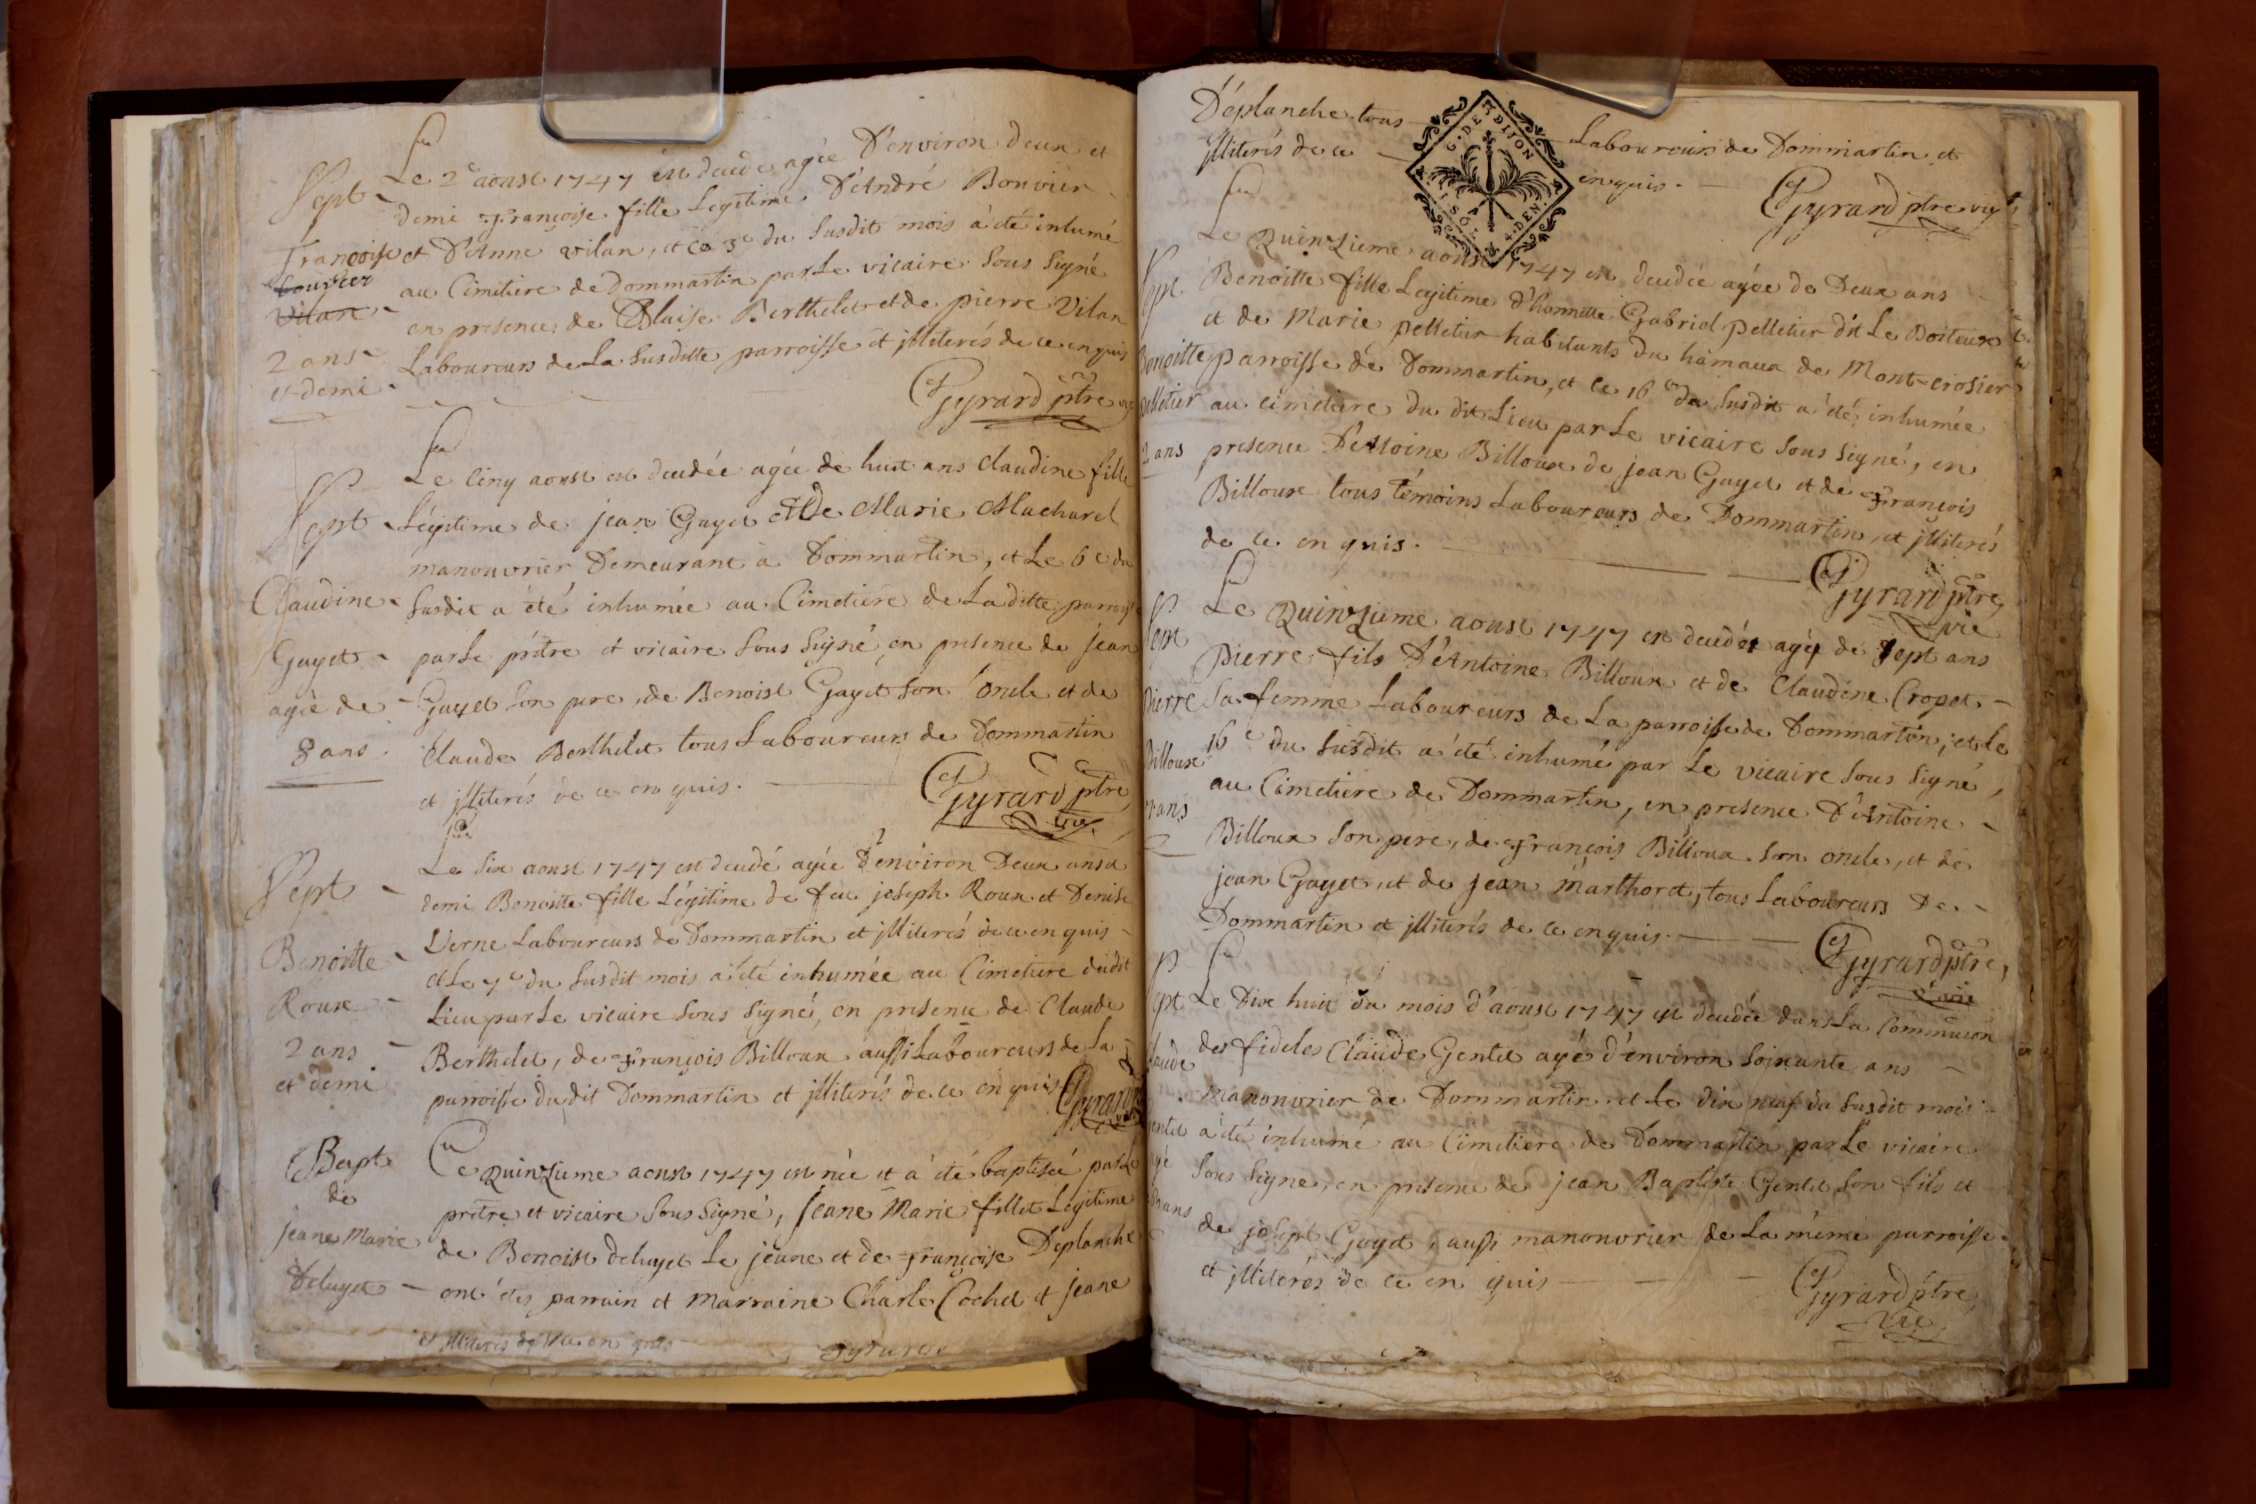 Sept
Françoise
bouvier
vilan
2 ans
et demi
Le 2e aoust 1747 est decede agée D'environ deux et
demi Françoise fille Legitime D'André Bonvier
et D'Anne vilan, et ce 3e du susdit mois a été inhumé
au Cimetiere de Dommartin par Le vicaire sous signé
en presence de Blaise Berthelet et de pierre Vilan
Laboureurs de La susditte parroisse et jlliterés de ce enquis
Gyrard ptre
Sept
Claudine
Gayet
agée de
8 ans
Le Cinq aoust est decedée agée de huit ans Claudine fille
Légitime de jean Gayet et De Marie Machard
manouvrier Demeurant à Dommartin, et Le 6e du
susdit a été inhumée au Cimetiere de La ditte parroisse
par Le prêtre et vicaire sous signé, en presence de jean
Gayet son pere, de Benoist Gayet son oncle et de
Claude Berthelet tous Laboureurs de Dommartin
et jlliterés de ce enquis.
Gyrard ptre,
vic
Sept
Benoitte
Roux
2 ans
et demi
Le six aoust 1747 est decedé agée d'environ Deux ans et
demi Benoitte fille Légitime de feu joseph Roux et Denise
Verne Laboureurs de Dommartin et jlliterés de ce enquis
et Le 7e du susdit mois a été inhumée au Cimetiere dudit
Lieu par Le vicaire sous signé, en presence de Claude
Berthelet, de François Billoux aussi Laboureurs de La
parroisse dudit Dommartin et jlliterés de ce enquis
Gyrard
Bapt
de
jeane Marie
Deluyet
Ce Quinzieme aoust 1747 est née et a été baptisée par Le
prêtre et vicaire sous signé, jeane Marie fille Legitime
de Benoist deluyet Le jeune et de Françoise Deplanche
ont étés parrain et marraine Charle Cochet et jeane
et jlliterés de ce enquis
Gyrard
Déplanche tous Laboureurs de Dommartin et
jlliterés de ce enquis.
G. DE DIJON
1 SOL 4 DEN.
Gyrard ptre vic
Sept
Benoitte
pelletier
2 ans
Le Quinzieme aoust 1747 est decedée agée de Deux ans
Benoitte fille Legitime d'honnette Gabriel pelletier dit Le Boiteux
et de Marie pelletier habitants du hamaux de Mont-crosier
parroisse de Dommartin, et ce 16e du susdit a été inhumée
au cimetiere du dit Lieu par Le vicaire sous signé, en
presence D'Antoine Billoux de jean Gayet et de François
Billoux tous témoins Laboureurs de Dommartin, et jlliterés
de ce enquis.
Gyrard ptre,
vic
Sept
Pierre
Billoux
7 ans
Le Quinzieme aoust 1747 est decedé agé de sept ans
Pierre fils D'Antoine Billoux et de Claudine Cropet
sa femme Laboureurs de La parroisse de Dommartin; et Le
16e du susdit a été inhumé par Le vicaire sous signé,
au Cimetiere de Dommartin, en presence D'Antoine
Billoux son pere, de François Billoux son oncle, et de
jean Gayet, et de jean marthoret, tous Laboureurs De
Dommartin et jlliterés de ce enquis.
Gyrard ptre,
vic
Sept
Claude
Gentet
agé
ans
Le Dix huit du mois d'aoust 1747 est decedée dans La Communion
des fideles Claude Gentet agé d'environ soixante ans
manouvrier de Dommartin et Le dix neuf du susdit mois
a été inhumé au Cimetiere de Dommartin par Le vicaire
sous signé, en presence de jean Baptiste Gentet son fils et
de joseph Gayet, aussi manouvrier de La même parroisse
et jlliterés de ce enquis
Gyrard ptre,
vic